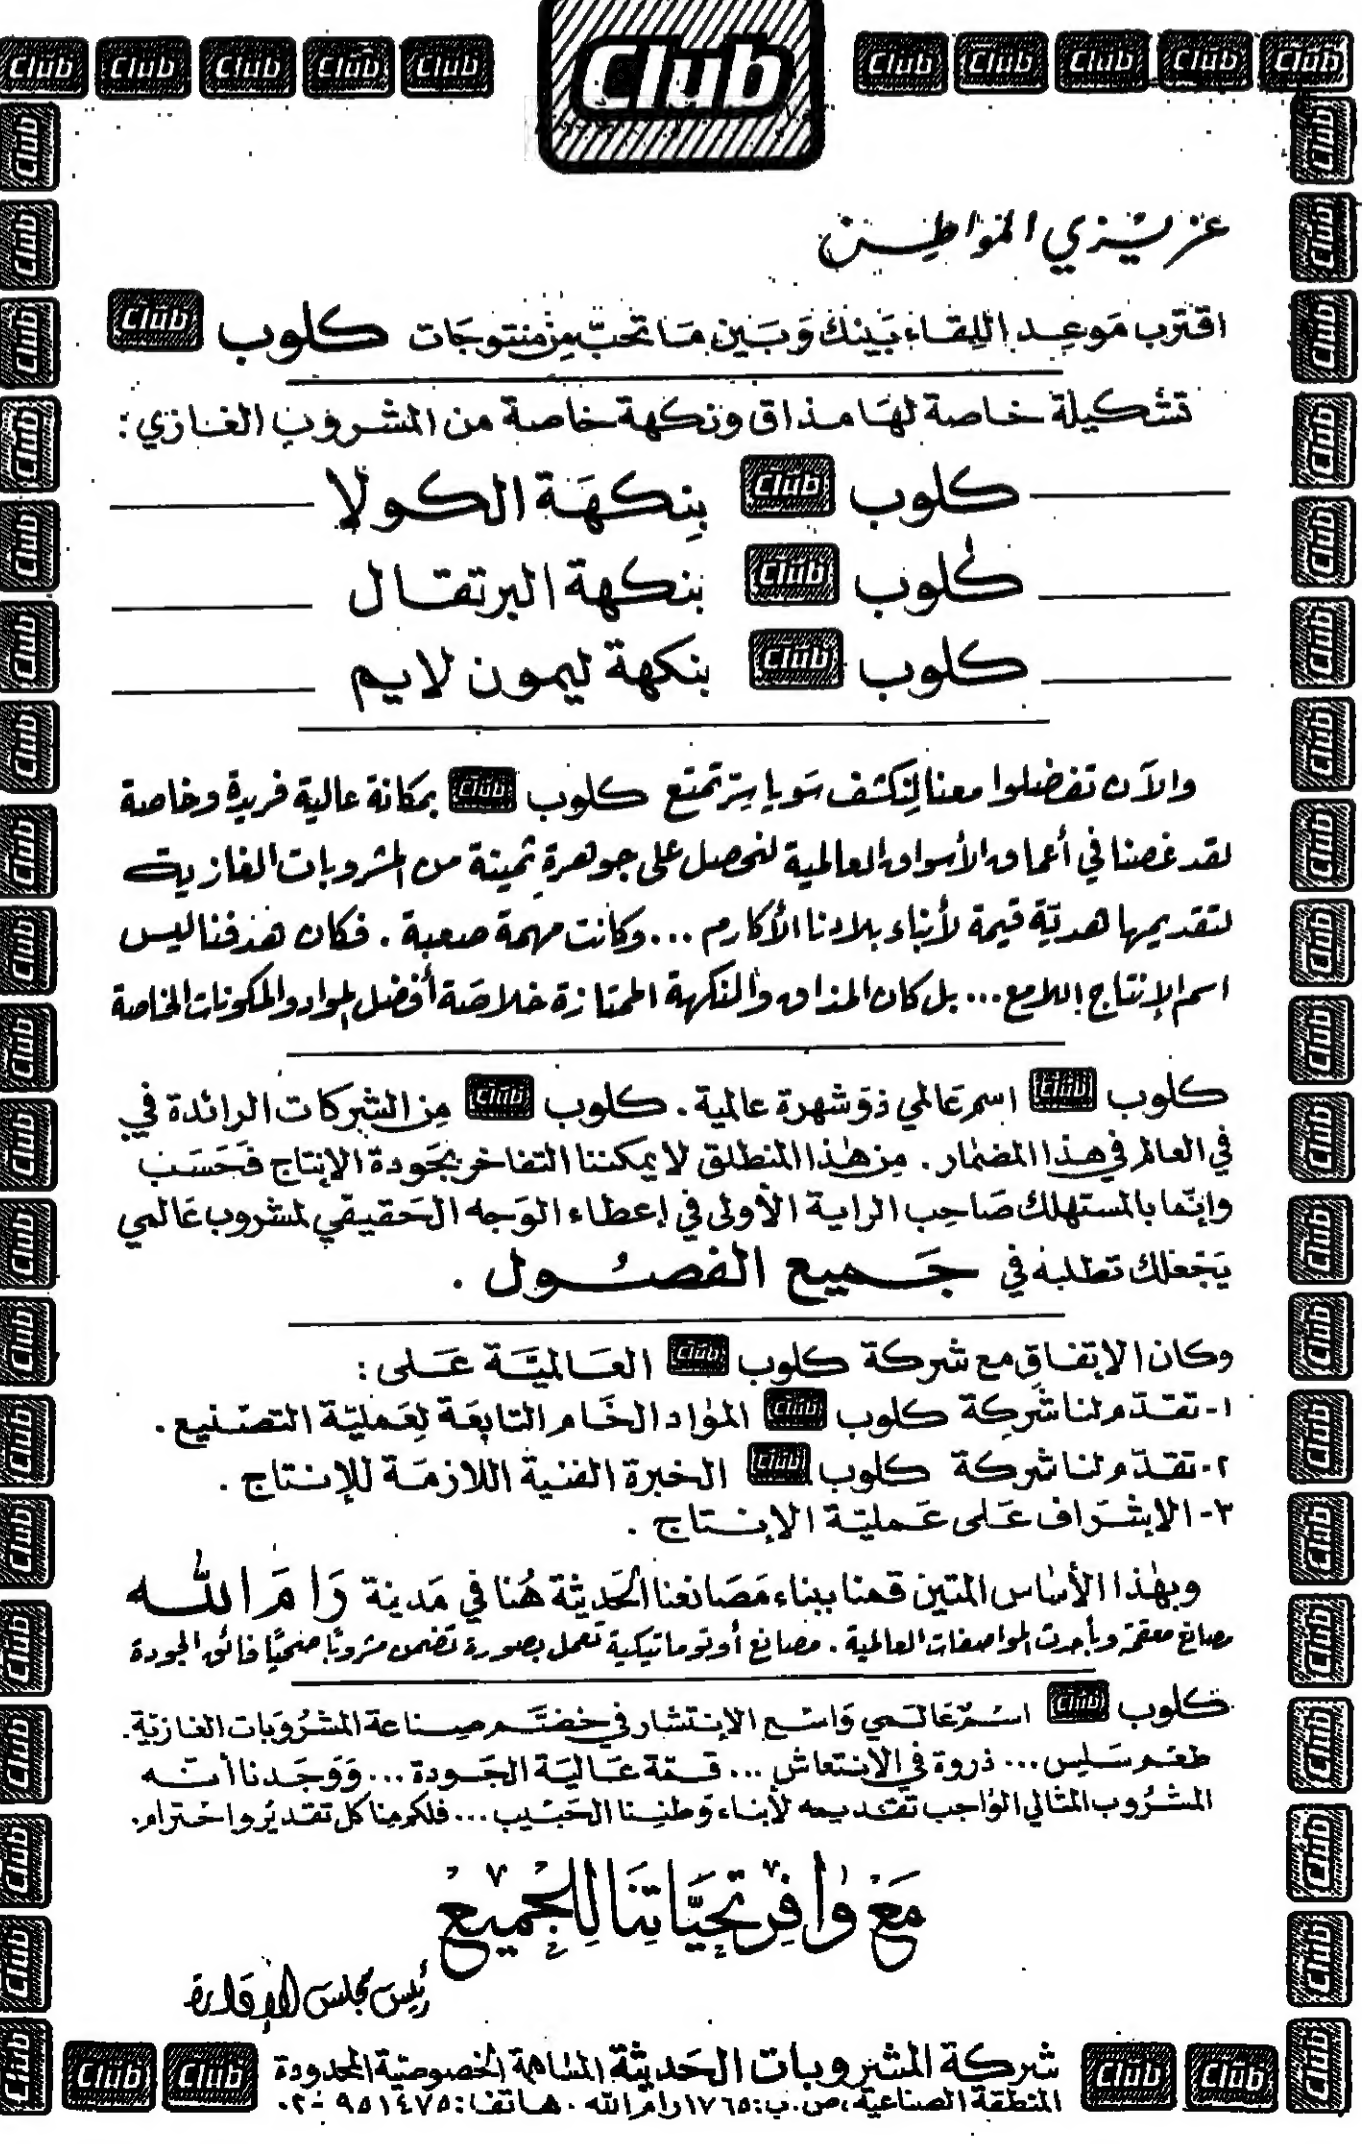 Club Club Club Club Club Club Club Club Club Club Club
عزيزي المواطن
اقترب موعد اللقاء بينك وبين ما تحب من منتوجات كلوب Club
تشكيلة خاصة لها مذاق ونكهة خاصة من المشروب الغازي:
كلوب Club بنكهة الكولا
كلوب Club بنكهة البرتقال
كلوب Club بنكهة ليمون لايم
والآن تفضلوا معنا لنكشف سويا سر تمتع كلوب Club بمكانة عالية فريدة وخاصة
لقد غصنا في أعماق الأسواق العالمية لنحصل على جوهرة ثمينة من المشروبات الغازية
لتقديمها هدية قيمة لأبناء بلادنا الأكارم ... وكانت مهمة صعبة . فكان هدفنا ليس
اسم الإنتاج اللامع ... بل كان المذاق والنكهة الممتازة خلاصة أفضل المواد والمكونات الخاصة
كلوب Club اسم عالمي ذو شهرة عالمية . كلوب Club من الشركات الرائدة في
في العالم في هذا المضمار . من هذا المنطلق لا يمكننا التفاخر بجودة الإنتاج فحسب
وإنما بالمستهلك صاحب الراية الأولى في إعطاء الوجه الحقيقي لمشروب عالمي
يجعلك تطلبه في جميع الفصول .
وكان الاتفاق مع شركة كلوب Club العالمية على :
١- تقدم لنا شركة كلوب Club المواد الخام التابعة لعملية التصنيع .
٢- تقدم لنا شركة كلوب Club الخبرة الفنية اللازمة للإنتاج .
٣- الإشراف على عملية الإنتاج .
وبهذا الأساس المتين قمنا ببناء مصانعنا الحديثة هنا في مدينة رام الله
مصانع معقمة وبأحدث المواصفات العالمية . مصانع أوتوماتيكية تعمل بصورة تضمن مشروبًا صحيًا فائق الجودة
كلوب Club اسم عالمي واسع الإنتشار في خضم صناعة المشروبات الغازية.
طعم سلس ... ذروة في الانتعاش ... قمة عالية الجودة ... ووجدنا أنه
المشروب المثالي الواجب تقديمه لأبناء وطننا الحبيب ... فلكم منا كل تقدير واحترام.
مع وافر تحياتنا للجميع
رئيس مجلس الإدارة
شركة المشروبات الحديثة المساهمة الخصوصية المحدودة
المنطقة الصناعية، ص.ب: ١٧٦٥ رام الله . هاتف: ٩٥١٤٧٥ -٠٢
Club Club Club Club